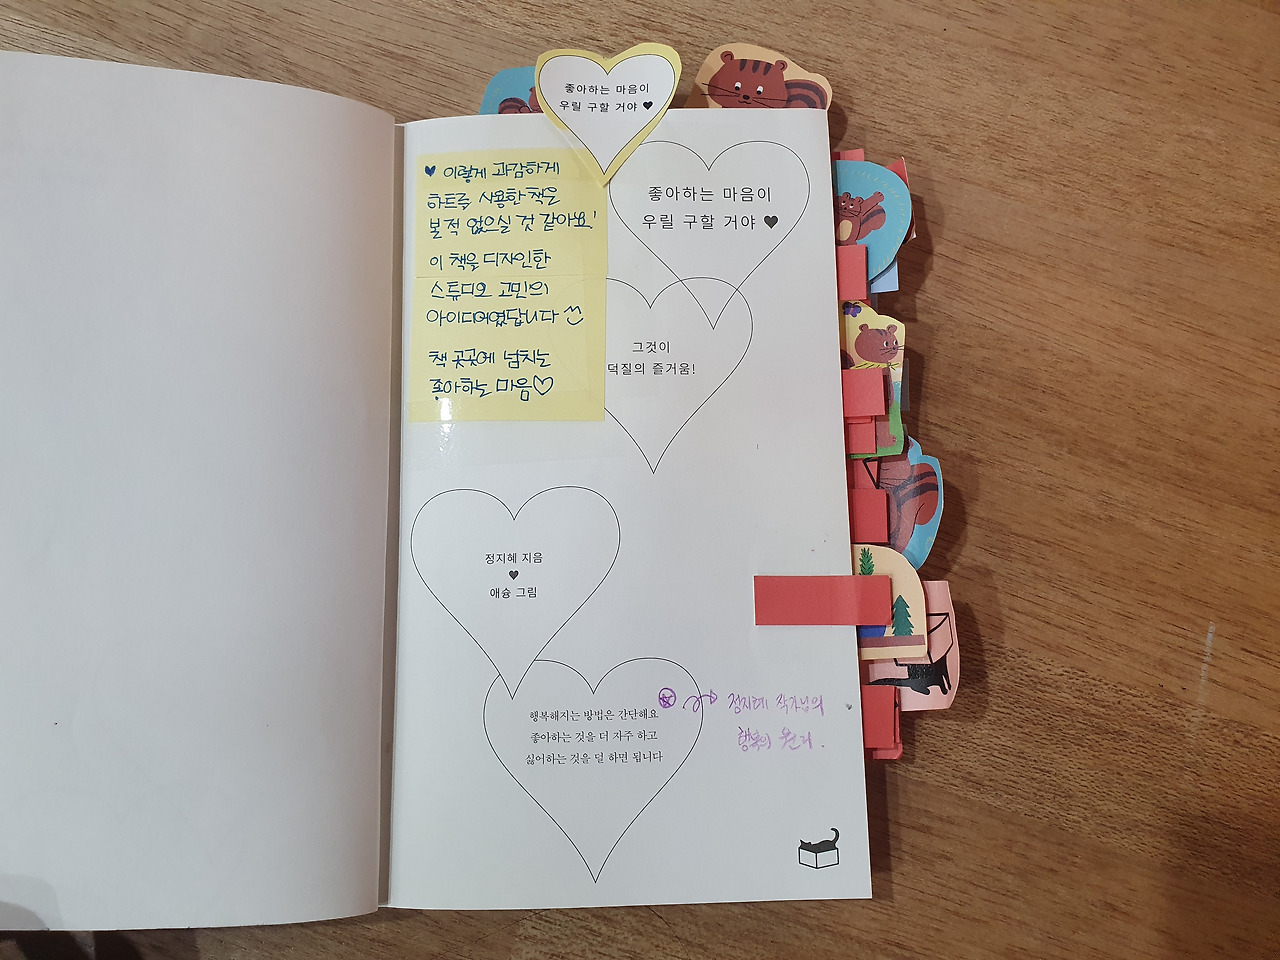 좋아하는 마음이
우릴 구할 거야 ♥
♥ 이렇게 과감하게
하트를 사용한 책을
본 적 없으실 것 같아요!
이 책을 디자인한
스튜디오 고민의
아이디어였답니다
책 곳곳에 넘치는
좋아하는 마음♡
좋아하는 마음이
우릴 구할 거야 ♥
그것이
덕질의 즐거움!
정지혜 지음
♥
애슝 그림
행복해지는 방법은 간단해요
좋아하는 것을 더 자주 하고
싫어하는 것을 덜 하면 됩니다
정지혜 작가님의
행복의 원리.